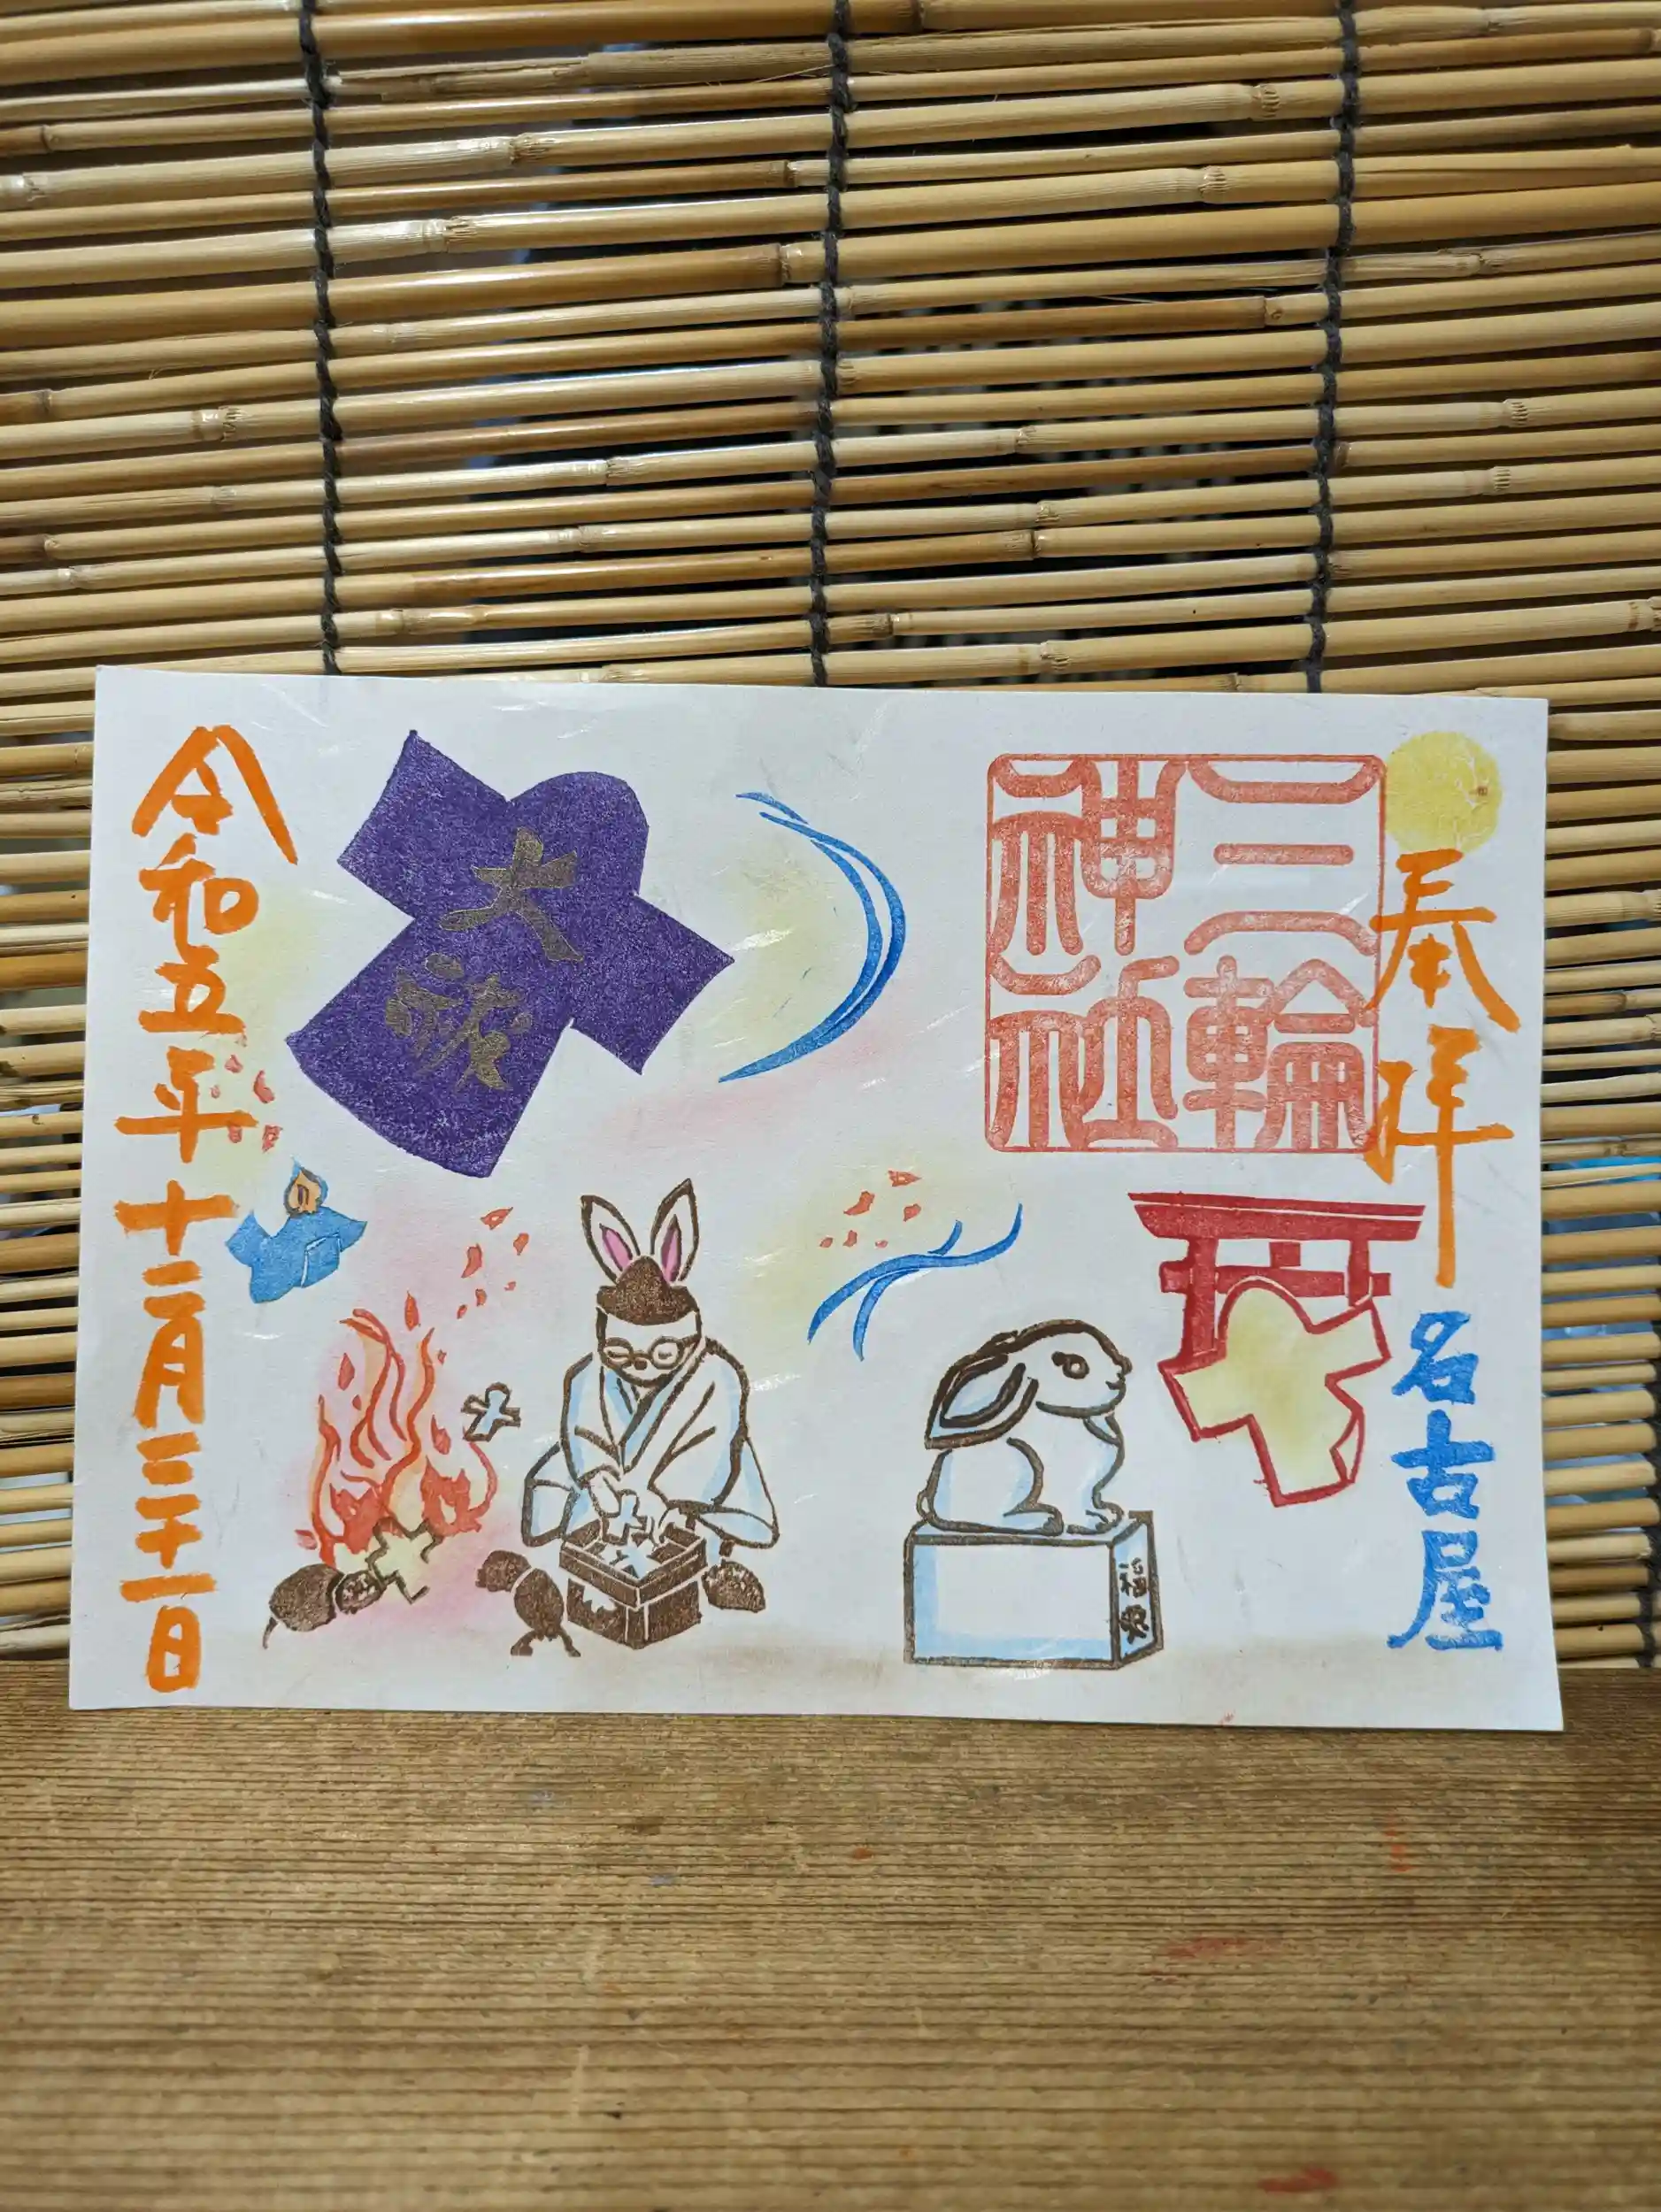 奉拝
名古屋
三輪
神社
大祓
福兎
令和五年十二月三十一日